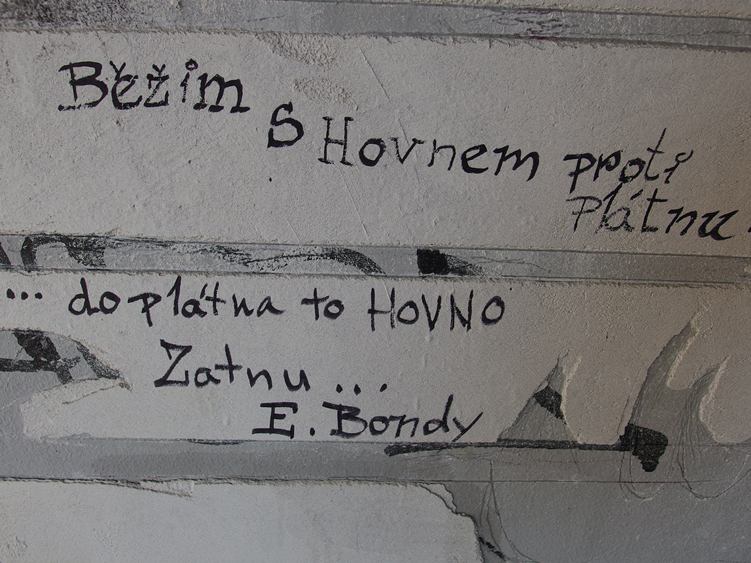 Běžím
s Hovnem proti
plátnu.
... do plátna to HOVNO
Zatnu ...
E. Bondy